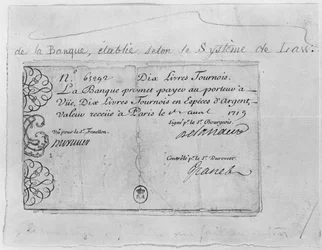 de la Banque, établie selon le Système de Law.
N.º 63292 Dix Livres Tournois.
La Banque promet payer au porteur à
Vüe, Dix Livres Tournois en Especes d'Argent,
valeur receüe à Paris le 1719
Signé p.r le S.r Bourgeois.
Delanauze
Vû pour le S.r Fenellon.
Controllé p.r le S.r Durevest
Granet